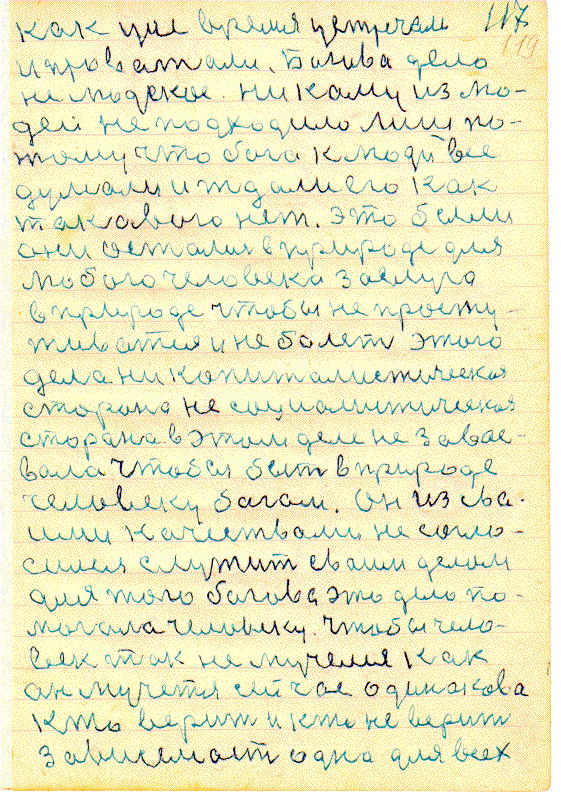 117
119
как уже время устречали
и проважали. Богова дело
не людское. никому из лю-
дей не подходило лиш по-
тому что бога к люди все
думали и ждали его как
такового нет. Это былы
они осталися в природе для
любого человека заслуга
в природе чтобы не просту-
живатся и не болеть этого
дела ни копиталистическая
сторона не социалистическая
сторана в этом деле не завое-
вала чтобы быть в природе
человеку богом. Он из сва-
ими качествами не согло-
сился служит своим делом
для того богова это дело по-
могала человеку. чтобы чело-
век так не мучелся как
он мучется сейчас одинакова
кто верит и кто не верит
зависемост одна для всех